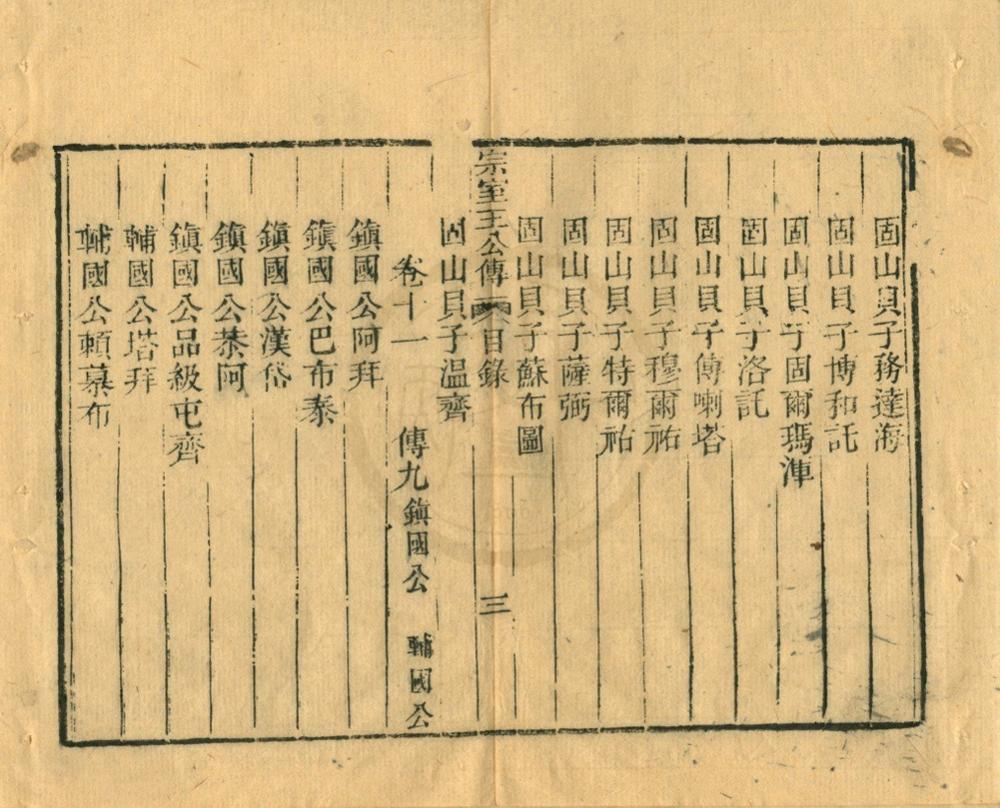 固山貝子務達海
固山貝子博和託
固山貝子固爾瑪渾
固山貝子洛託
固山貝子傅喇塔
固山貝子穆爾祐
固山貝子特爾祜
固山貝子薩弼
固山貝子蘇布圖
宗室王公傳 目錄 三
固山貝子溫齊
卷十一 傳九鎮國公 輔國公
鎮國公阿拜
鎮國公巴布泰
鎮國公漢岱
鎮國公恭阿
鎮國公品級屯齊
輔國公塔拜
輔國公賴慕布